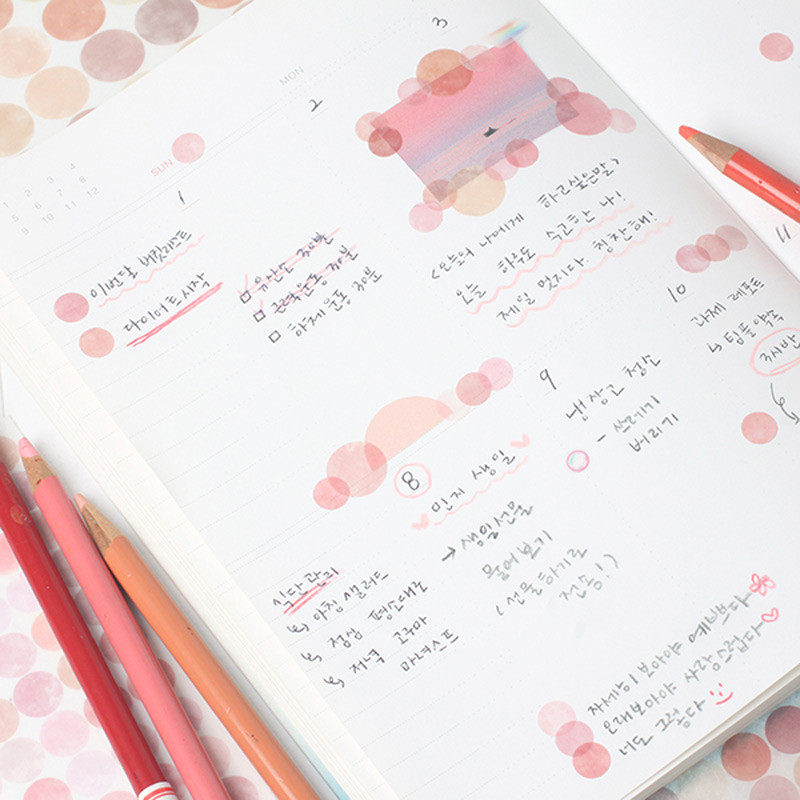 MON
SUN
1 2 3 4
5 6 7 8
9 10 11 12
1
2
3
이번달 버킷리스트
다이어트 시작
□ 유산소 30분
□ 근력운동 30분
□ 하체운동 30분
<오늘의 나에게 하고싶은말>
오늘 하루도 수고한 나!
제일 멋지다 칭찬해!
8
민지 생일
→ 생일선물
물어보기
(선물하기로
전송!)
식단관리
↳ 아침 샐러드
↳ 점심 평소대로
↳ 저녁 고구마
마녀스프
9
냉장고 청소
- 쓰레기
버리기
10
과제 레포트
↳ 팀플약속
3시반
11
자세히 보아야 예쁘다
오래 보아야 사랑스럽다
너도 그렇다